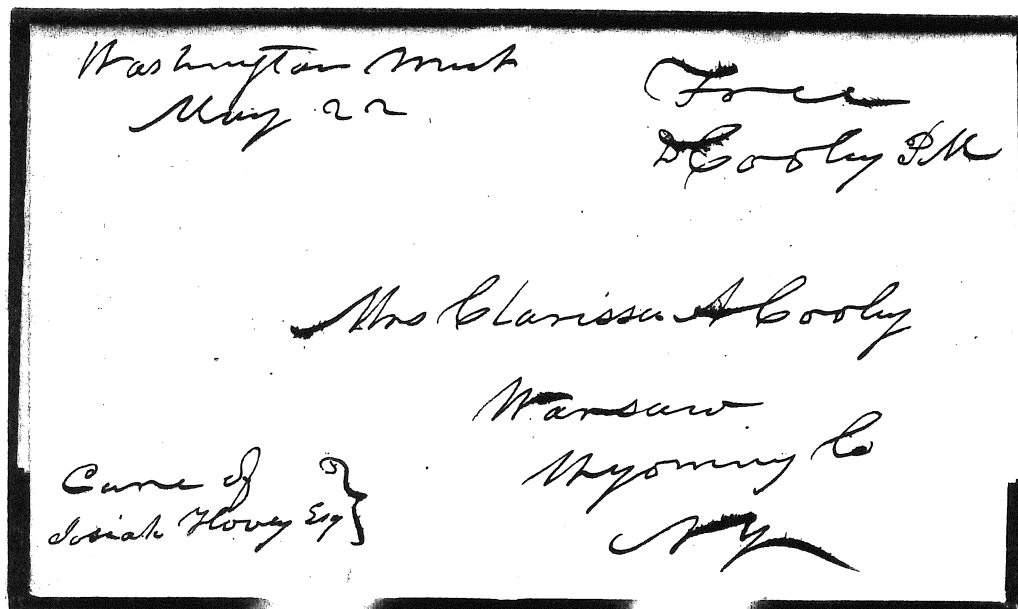 Washington Mich
May 22
Free
D Cooley PM
Mrs Clarissa A Cooley
Warsaw
Wyoming Co
NY
Care of
Josiah Hovey Esq